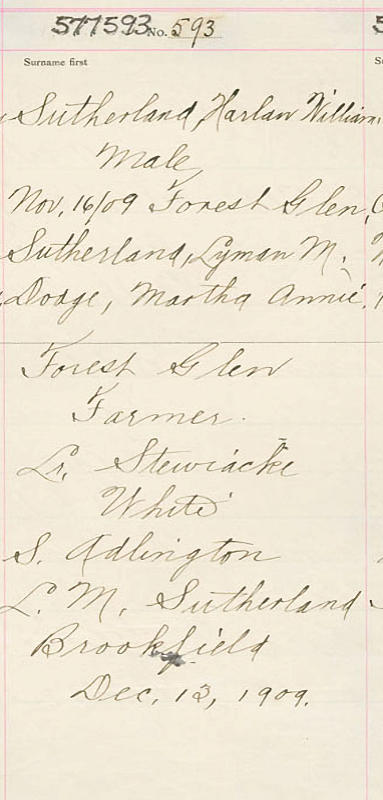 577593 No. 593
Surname first
Sutherland, Harlan William
Male
Nov. 16/09 Forest Glen
Sutherland, Lyman M.
Dodge, Martha Annie
Forest Glen
Farmer.
Lr. Stewiacke
White
S. Adlington
L. M. Sutherland
Brookfield
Dec. 13, 1909.